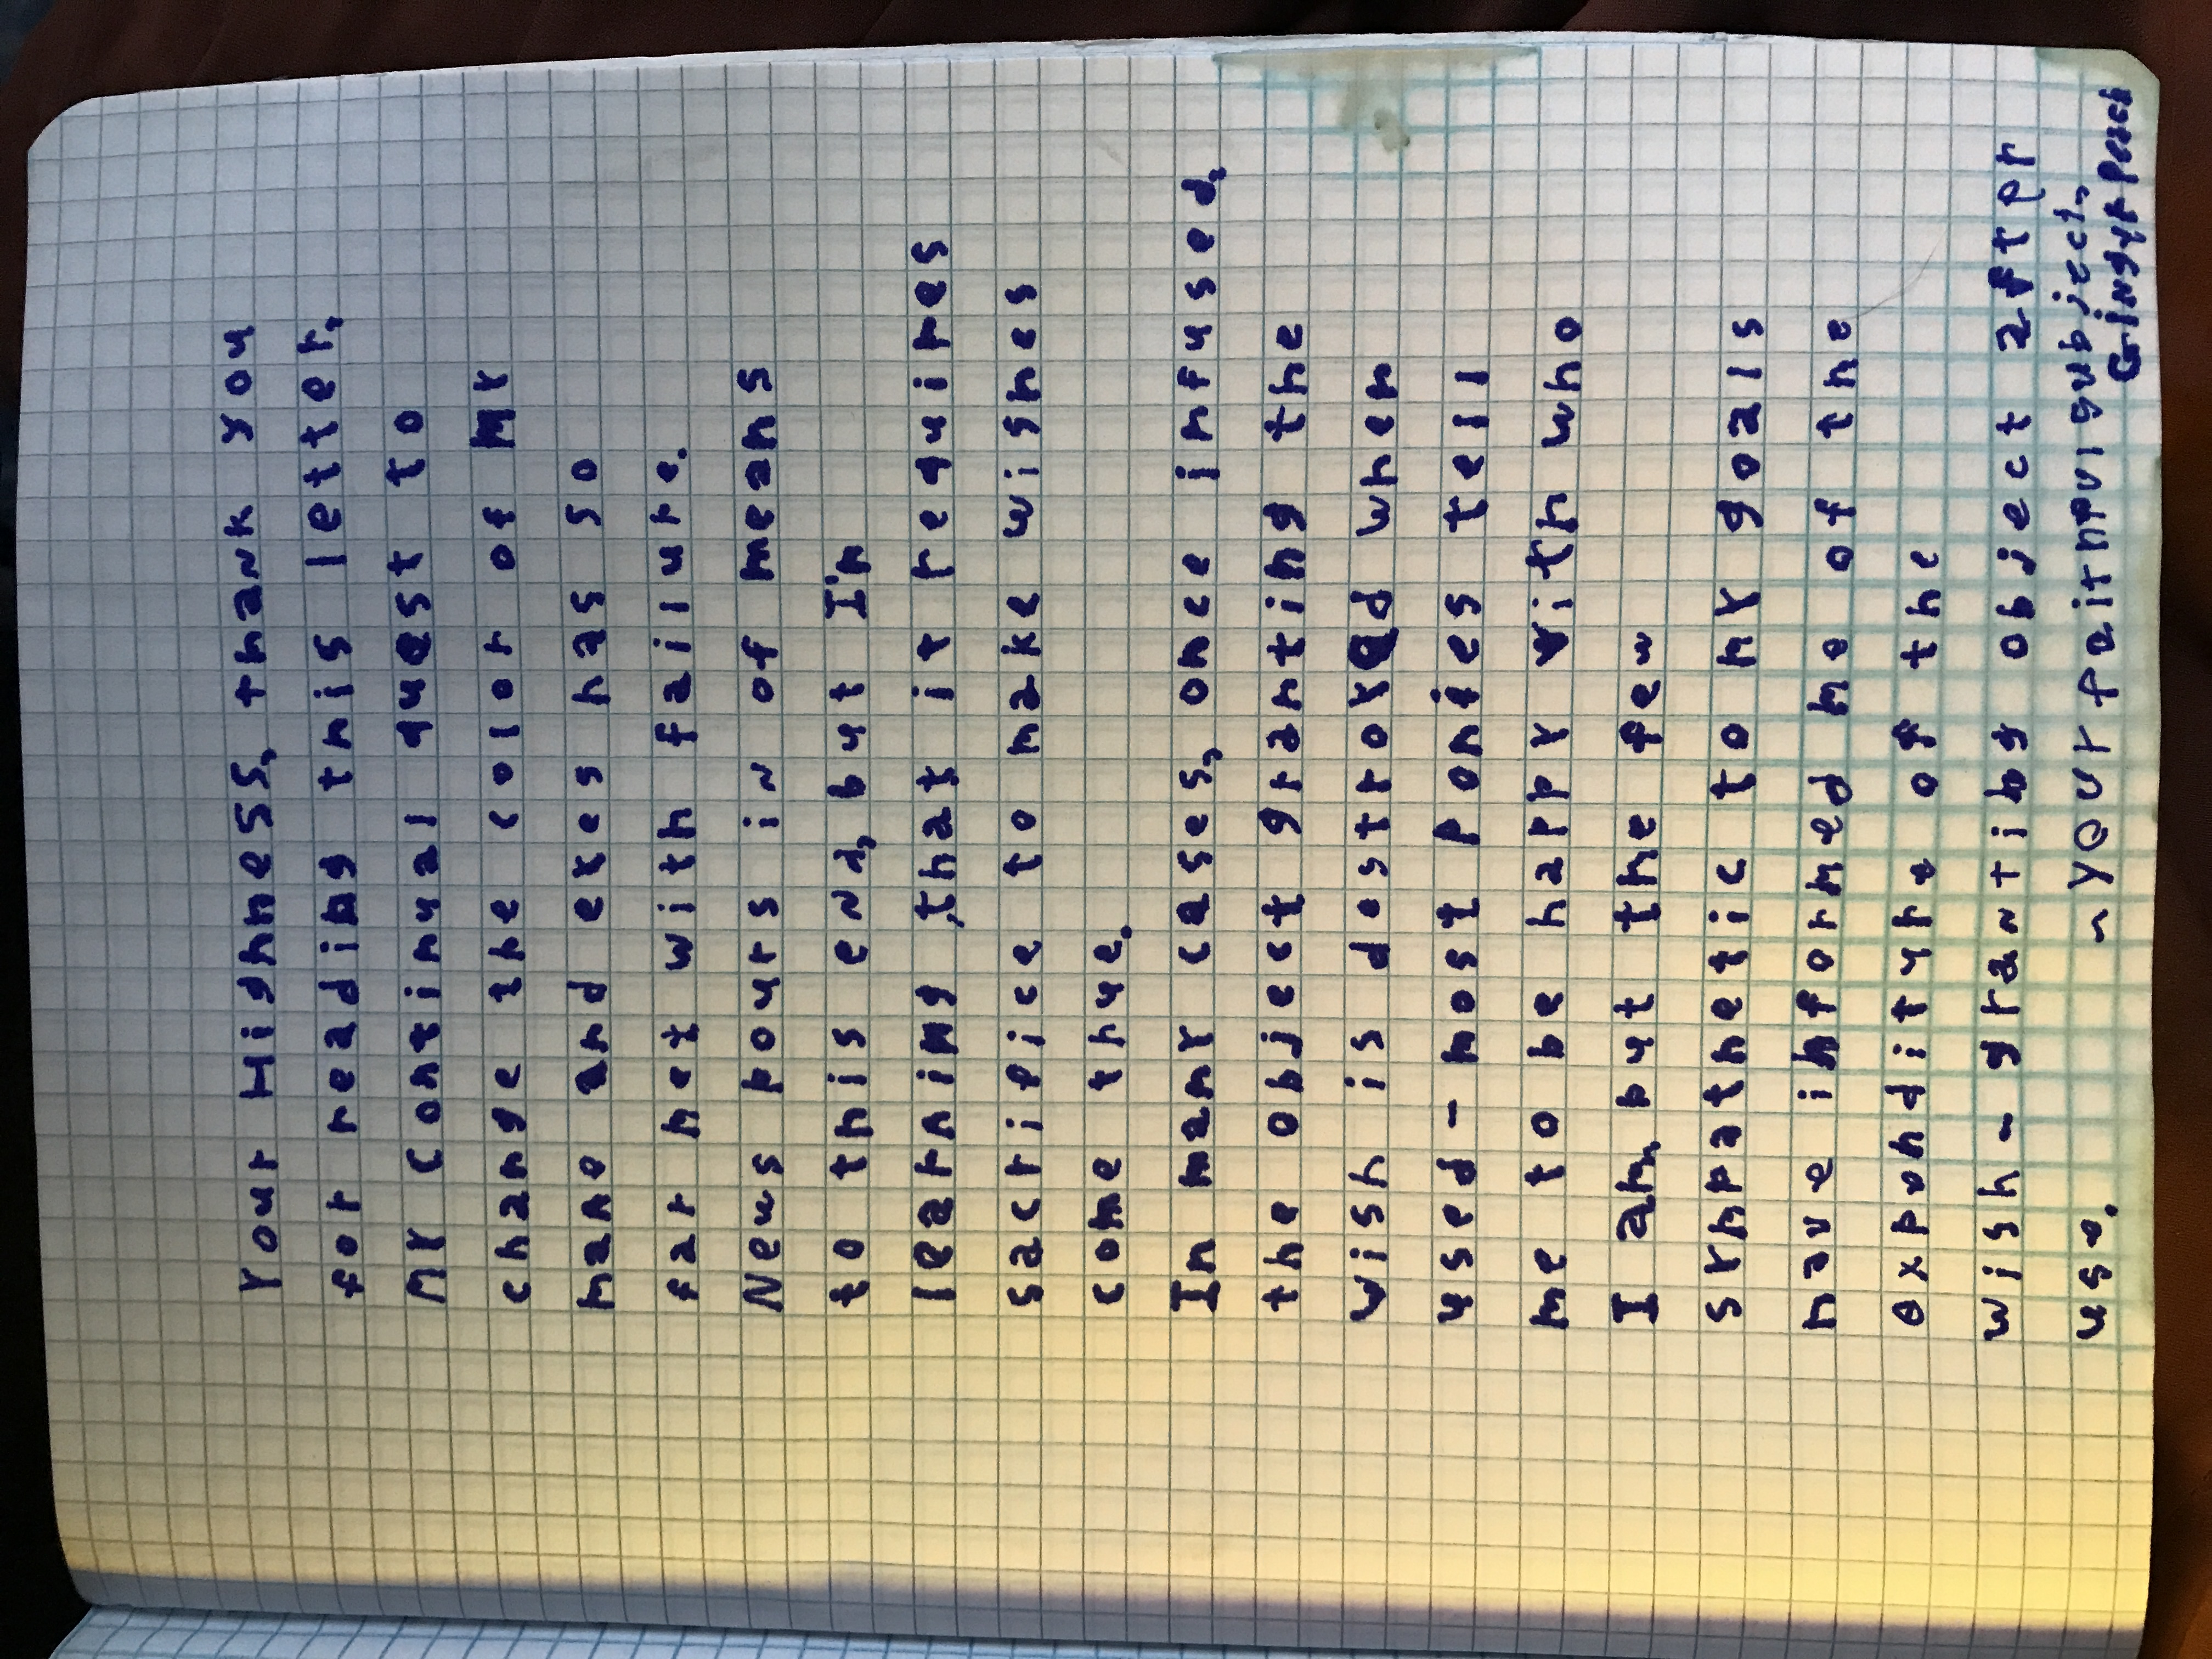 Your Highness, thank you
for reading this letter.
My continual quest to
change the color of my
mane and eyes has so
far met with failure.
News pours in of means
to this end, but I'm
learning that it requires
sacrifice to make wishes
come true.
In many cases, once infused,
the object granting the
wish is destroyed when
used - most ponies tell
me to be happy with who
I am, but the few
sympathetic to my goals
have informed me of the
expenditure of the
wish-granting object after
use. ~ your faithful subject,
Ginger Peach